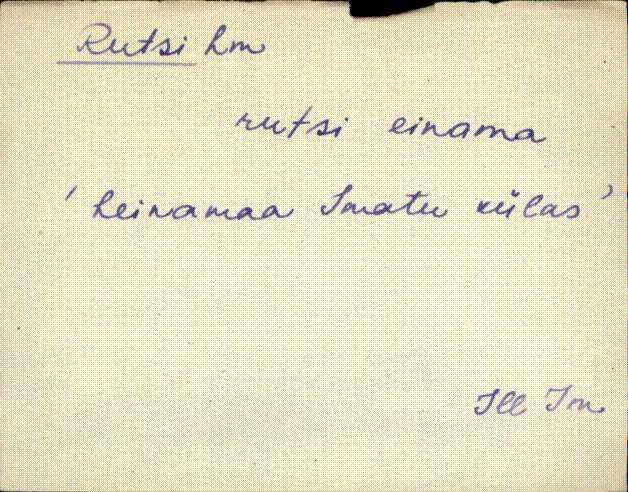 Rutsi hm
rutsi einama
' heinamaa Imatu külas '
Ill Im